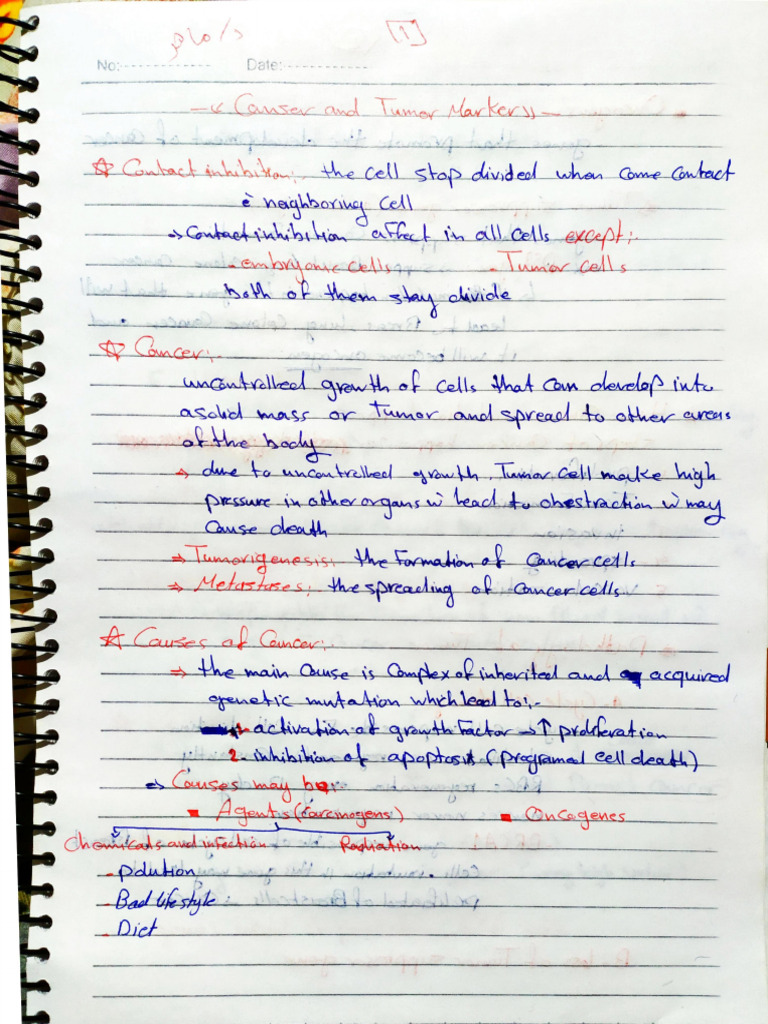 د/ماهر [1]
No:------------- Date:------------
-« Canser and Tumor Marker» -
☆ Contact inhibition:. the cell stop divided when come contact
è neighboring cell
→ Contact inhibition affect in all cells except:.
- embryonic cells - Tumor cells
both of them stay divide
☆ Cancer:.
uncontrolled growth of cells that can develop into
a solid mass or Tumor and spread to other areas
of the body
→ due to uncontrolled growth, Tumor cell make high
pressure in other organs w lead to obestraction w may
cause death
⇒ Tumorigenesis: the Formation of Cancer cells
⇒ Metastases: the spreading of Cancer cells
☆ Causes of Cancer:.
⇒ the main Cause is Complex of inherited and acquired
genetic mutation which lead to:-
1- activation of growth Factor → ↑ proliferation
2- inhibition of apoptosis (programed cell death)
⇒ Causes may be:
▪ Agents (carcinogens) ▪ Oncogenes
Chemicals and infection Radiation
- Polution
- Bad lifestyle
- Diet